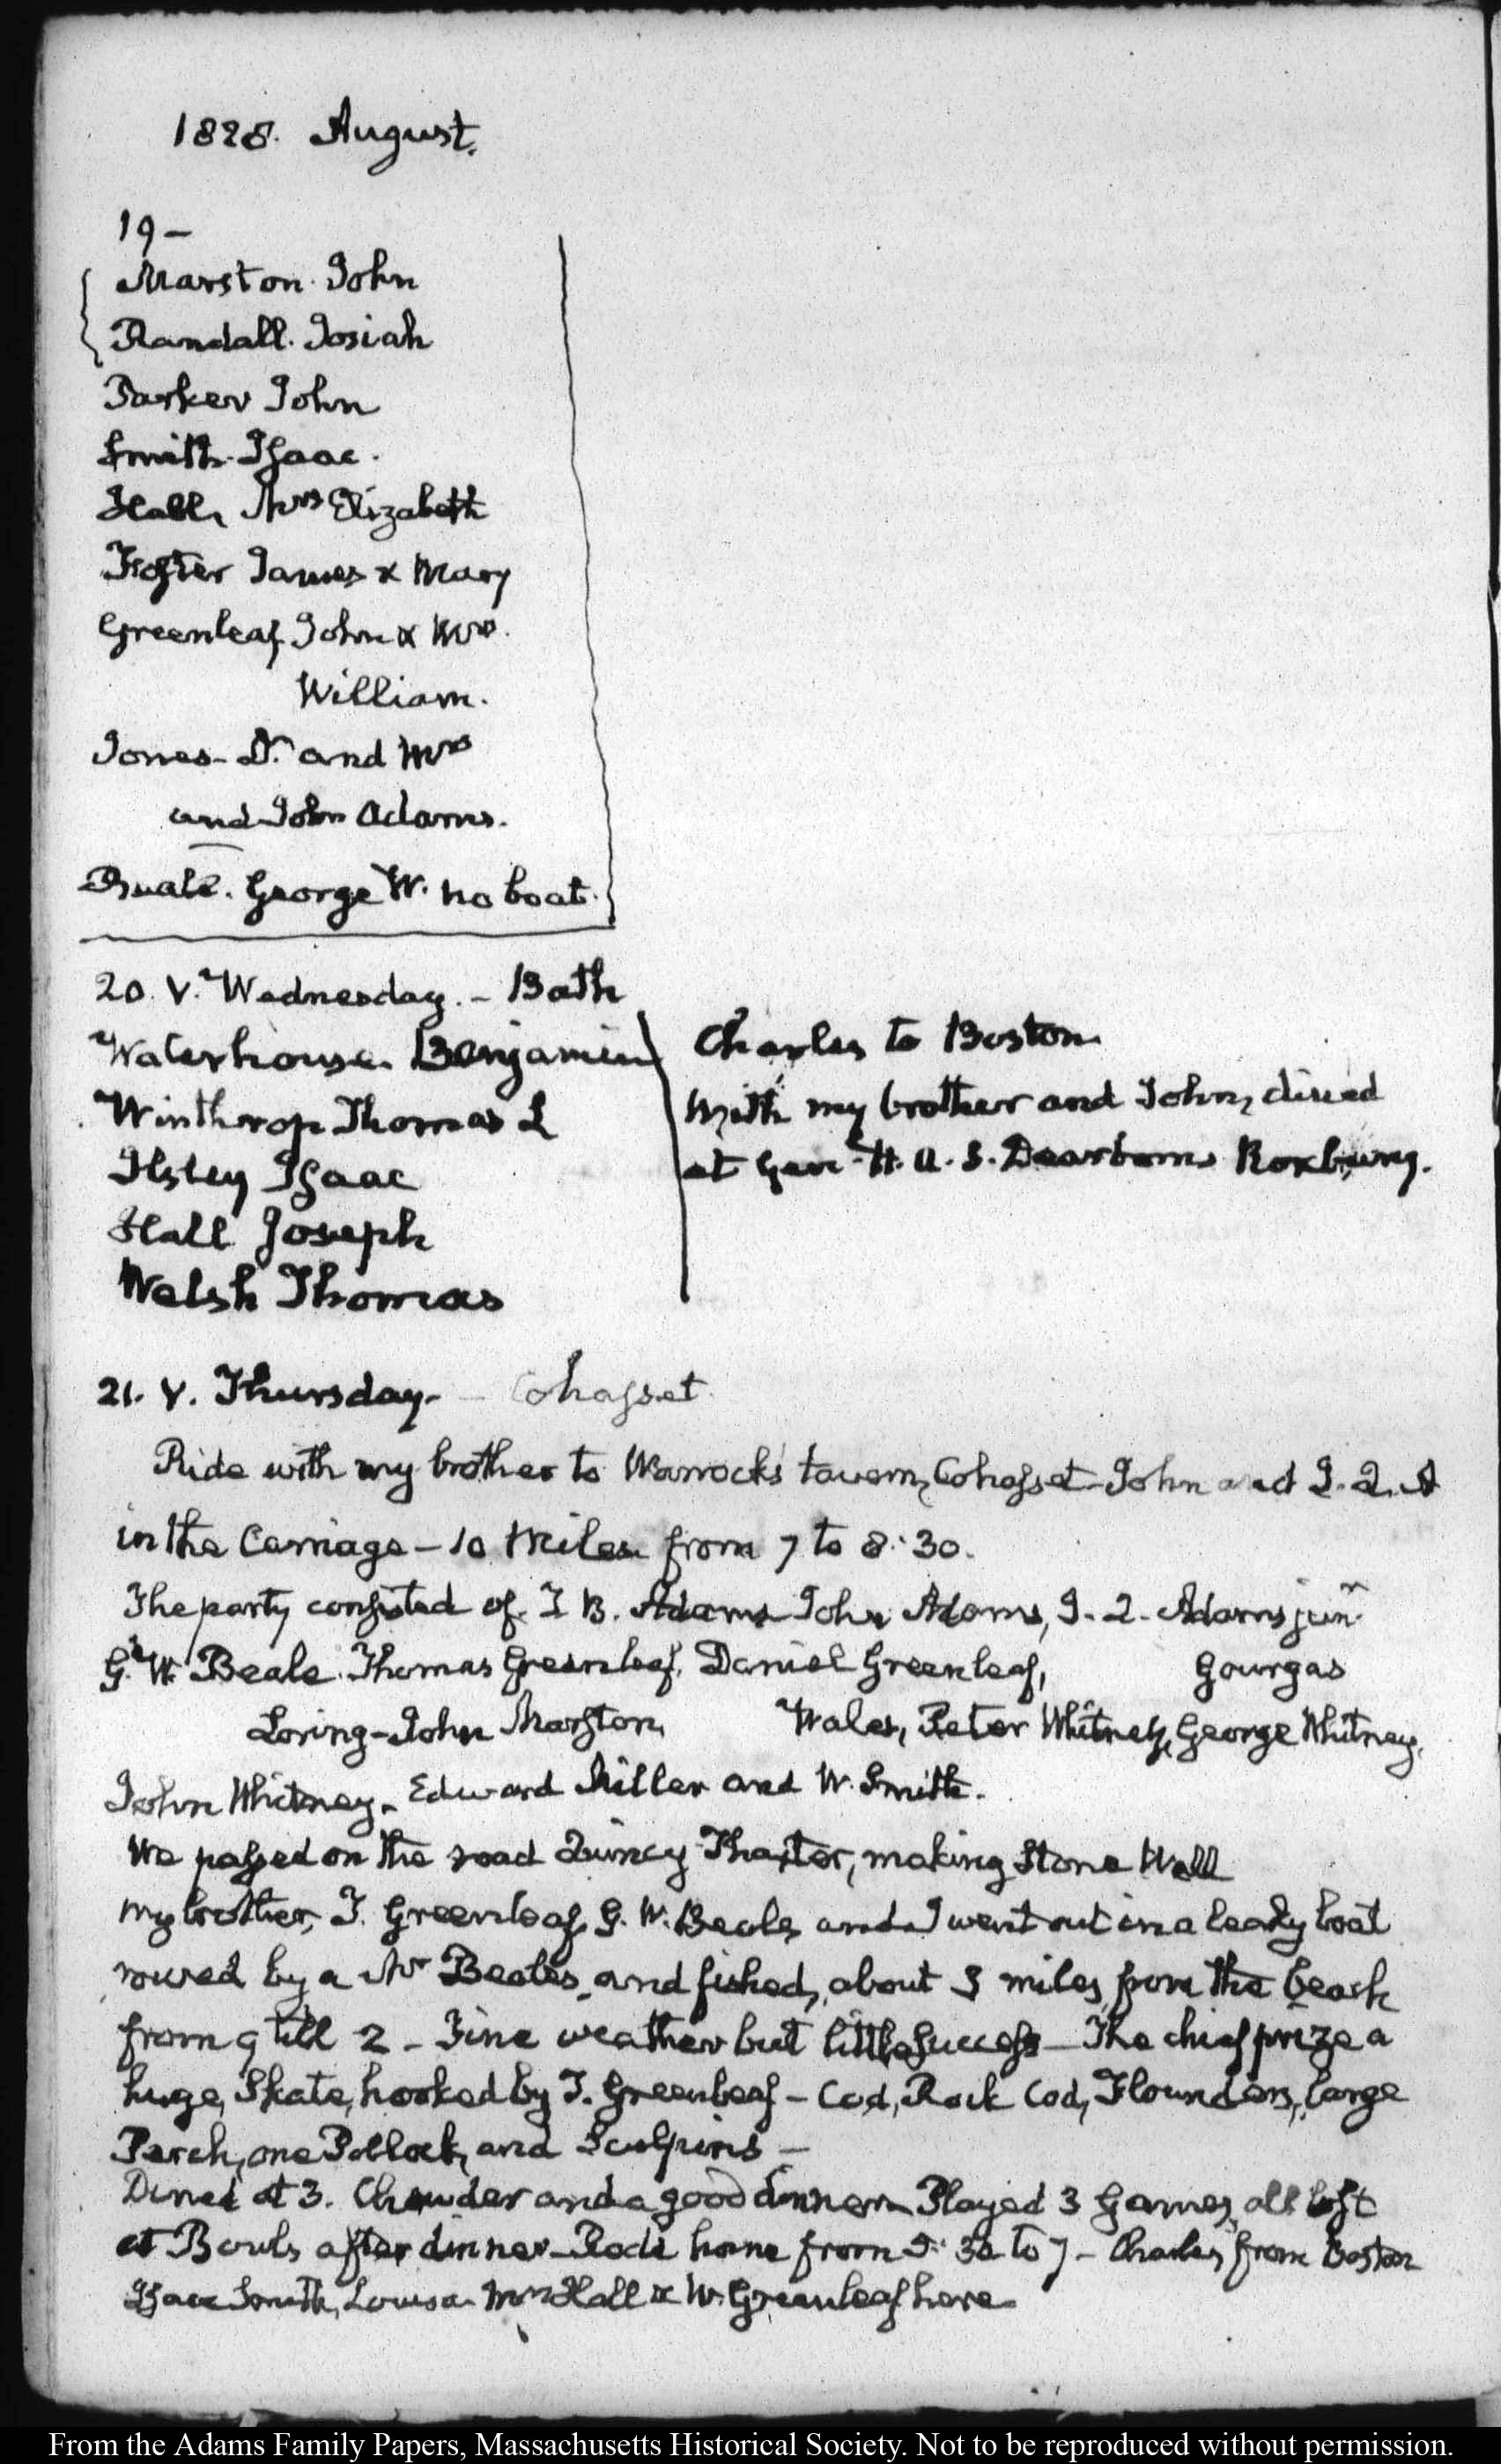 1828. August.
19 —
Marston John
Randall. Josiah
Parker John
Smith Isaac.
Hall, Mrs Elizabeth
Foster James & Mary
Greenleaf John & Mrs.
William.
Jones - Dr. and Mrs
and John Adams.
Beale. George W. no boat.
20. V. Wednesday. - Bath
Waterhouse Benjamin
Winthrop Thomas L
Ilsley Isaac
Hall Joseph
Welsh Thomas
Charles to Boston
With my brother and John, dined
at Genl. H. A. S. Dearborn's Roxbury.
21. V. Thursday - Cohasset
Ride with my brother to Warrock's tavern, Cohasset - John and J. Q. A
in the Carriage - 10 Miles from 7 to 8:30.
The party consisted of T B. Adams John Adams, J. Q. Adams junr
G. W. Beale. Thomas Greenleaf, Daniel Greenleaf, Gourgas
Loring - John Marston, Wales, Peter Whitney, George Whitney,
John Whitney, Edward Miller and W. Smith.
We passed on the road Quincy Thaxter, making Stone Wall
My brother, T. Greenleaf, G. W. Beale, and I went out in a leaky boat
rowed by a Mr Beales, and fished, about 3 miles from the beach
from 9 till 2 - Fine weather but little success - The chief prize a
huge, Skate, hooked by T. Greenleaf - Cod, Rock Cod, Flounders, large
Perch, one Pollock, and Sculpins -
Dined at 3. Chowder and a good dinner Played 3 Games, all lost
at Bowls after dinner - Rode home from 5:30 to 7 - Charles from Boston
Isaac Smith, Louisa Mrs Hall & W. Greenleaf here
From the Adams Family Papers, Massachusetts Historical Society. Not to be reproduced without permission.